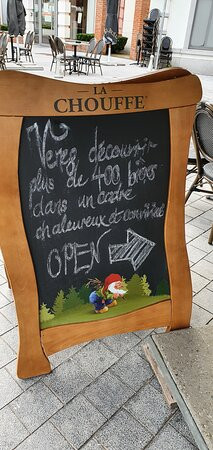 LA
CHOUFFE
Venez découvrir
plus de 400 bières
dans un cadre
chaleureux et convivial
OPEN